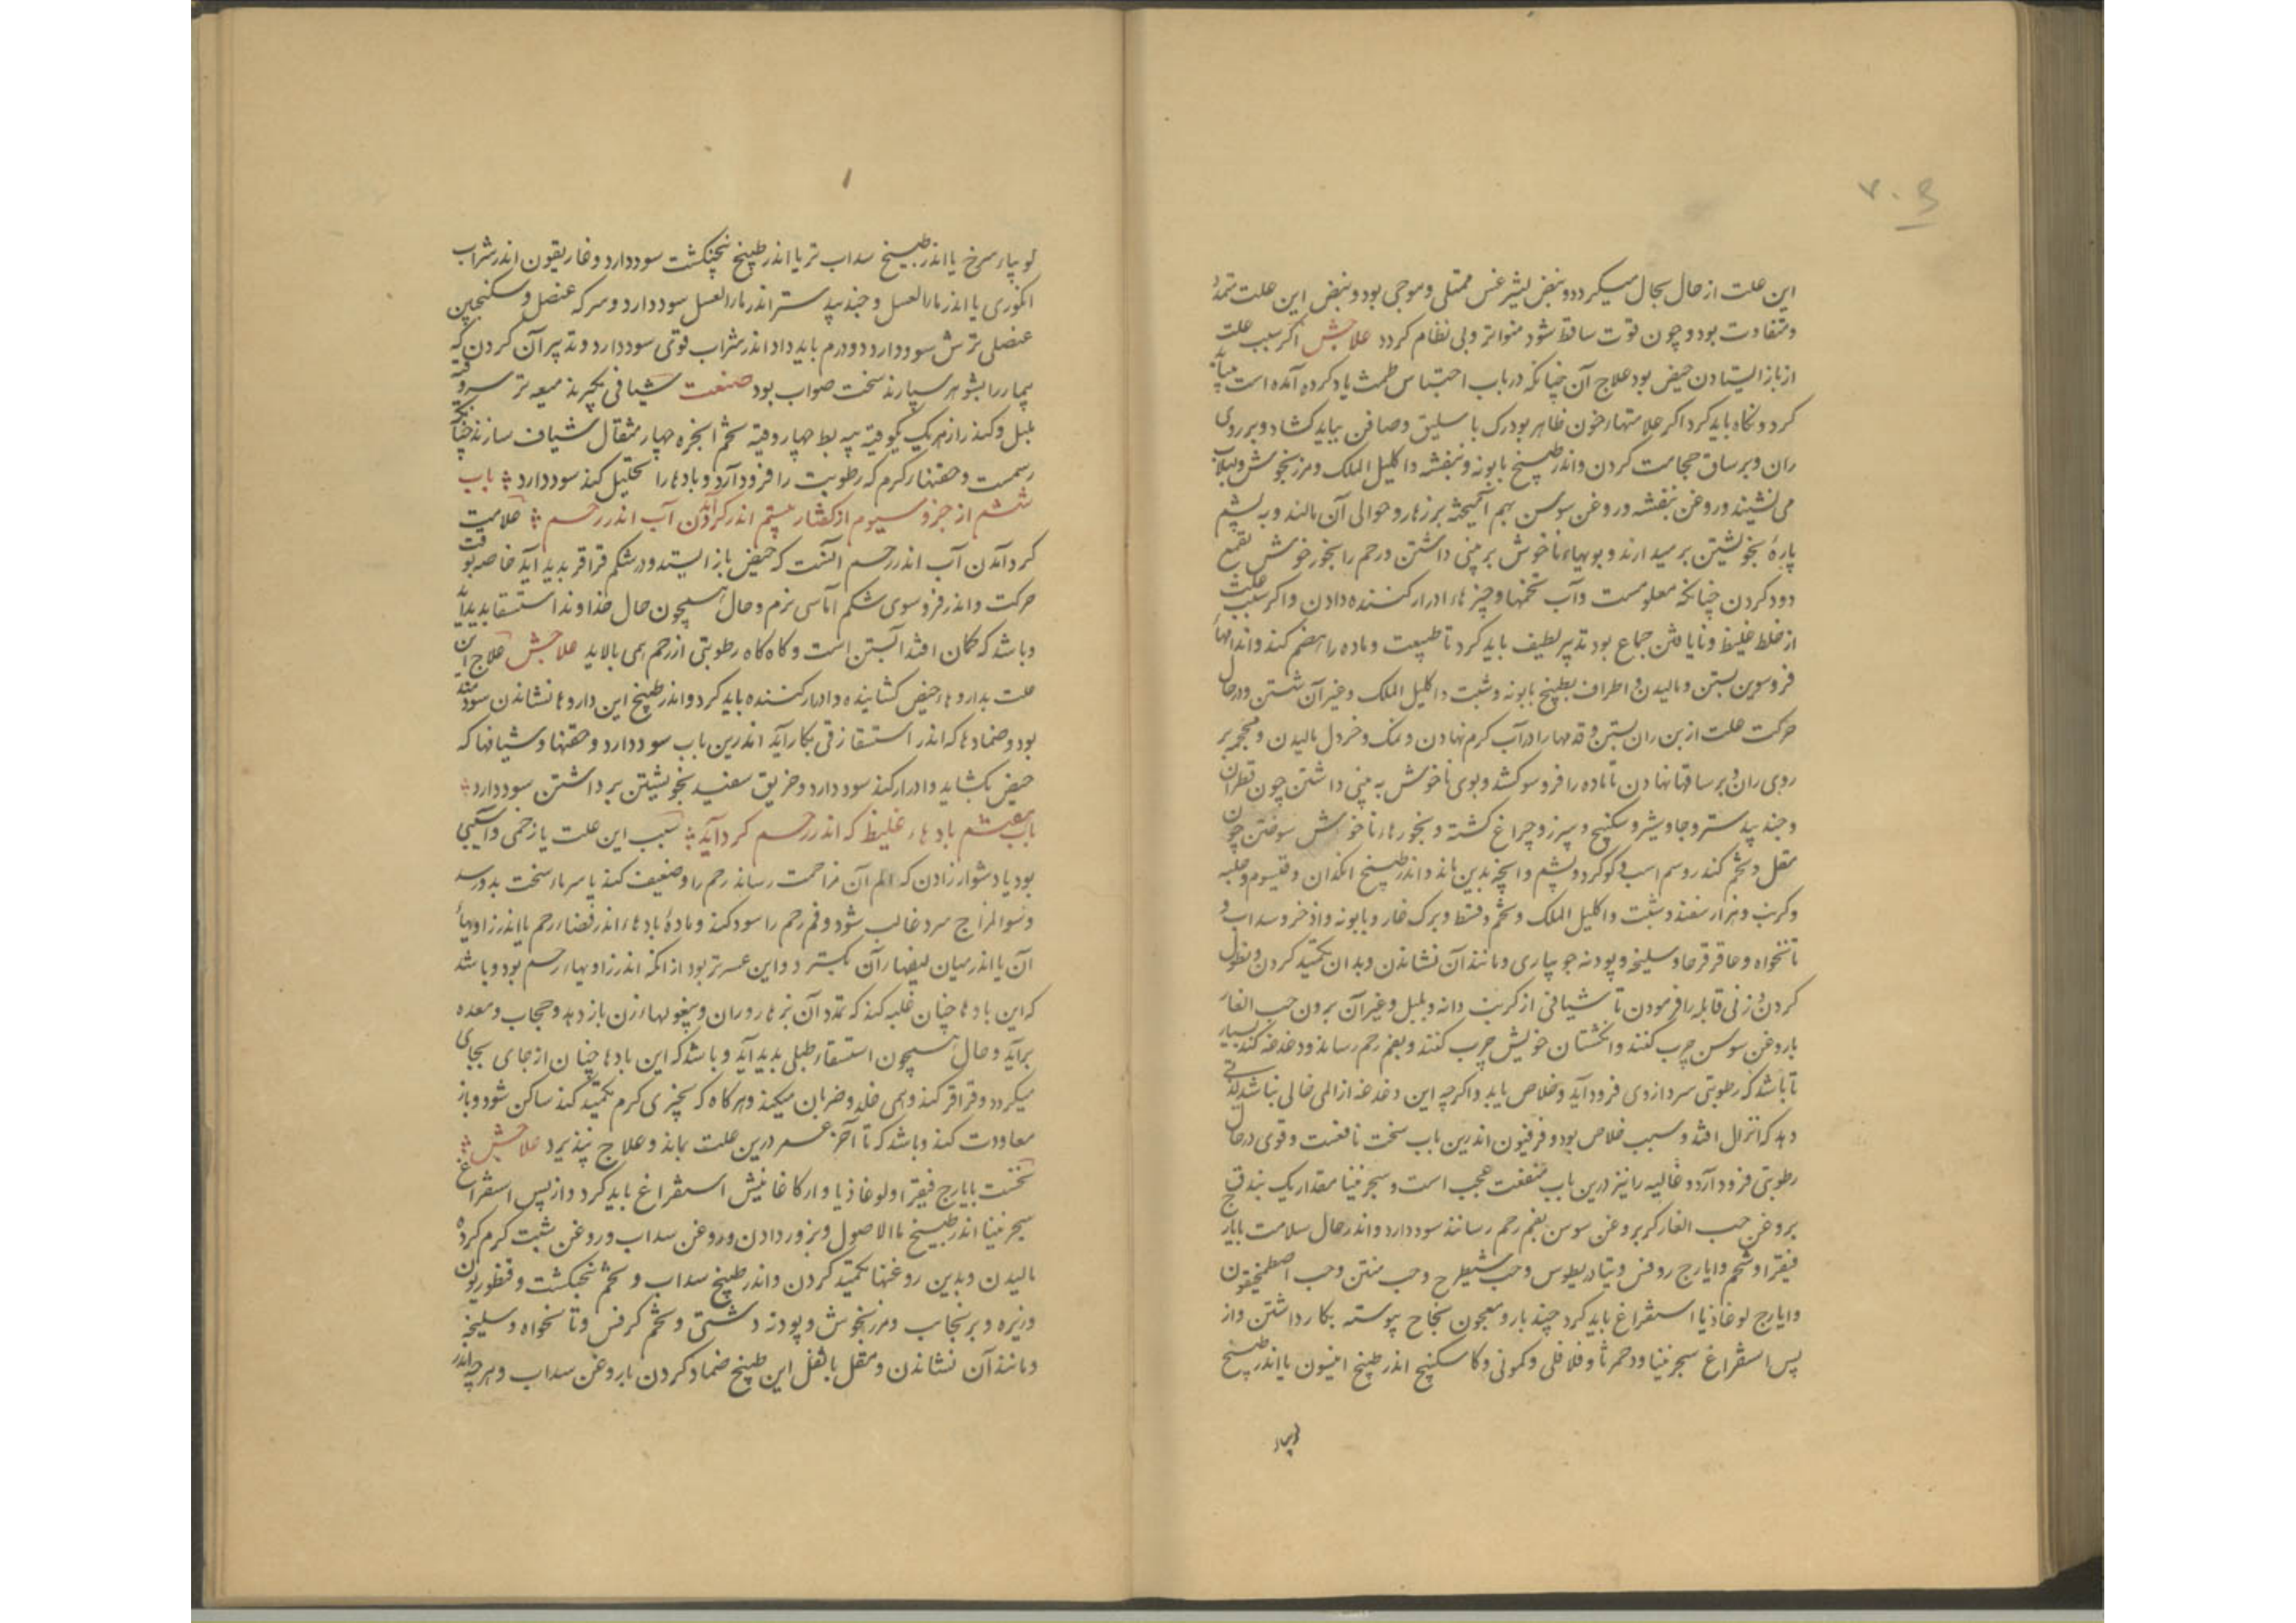 ۷۰۶
این علت از حال بحال میکردد و نبض بیشر غس ممتلی و موجی بود و نبض این علت متمدد
و متفاوت بود و چون قوت ساقط شود متواتر و بی نظام کردد علاجش اکر سبب علت
از باز ایستادن حیض بود علاج آن چنانکه در باب احتباس طمث یاد کرده آمده است بباید
کرد و نکاه باید کرد اکر علامتهاء خون ظاهر بود رک باسلیق و صافن بباید کشاد و بر روی
ران و بر ساق حجامت کردن و اندر طبیخ بابونه و بنفشه و اکلیل الملک و مرزنجوش و لبلاب
می نشیند و روغن بنفشه و روغن سوسن بهم آمیخته بر زهار و حوالی آن مالند و به پشم
پارهٔ بخویشتن برمیدارند و بویهاء ناخوش بر بینی داشتن و رحم را بخور خوش بقمع
دود کردن چنانکه معلومست و آب تخمها و چیزهاء ادرار کننده دادن و اکر سبب علت
از خلط غلیظ و نایافتن جماع بود تدبیر لطیف باید کرد تا طبیعت و ماده را هضم کند و اندامهاء
فروسوین بستن و مالیدن و اطراف بطبیخ بابونه و شبت و اکلیل الملک و غیر آن شستن و در حال
حرکت علت از بن ران بستن و قدمها را در آب کرم نهادن و نمک و خردل مالیدن و محجمه بر
روی ران و بر ساقها نهادن تا ماده را فروسو کشد و بوی ناخوش به بینی داشتن چون قطران
و جندبیدستر و جاوشیر و سکبینج و سیرز و چراغ کشته و بخورهاء ناخوش سوختن چون
مقل و تخم کند و سم اسب و کوکرد و پشم و انچه بدین ماند و اندر طبیخ انکدان و قیسوم و حلبه
و کرنب و هزار سفند و شبت و اکلیل الملک و تخم و قسط و برک غار و بابونه و اذخر و سداب و
نانخواه و عاقرقرحا و سلیخه و پودنه جویباری و مانند آن نشاندن و بدان تکمید کردن و نطول
کردن و زنی قابله را فرمودن تا شیافی از کرنب دانه و بلبل و غیر آن برون حب الغار
با روغن سوسن چرب کنند و انکشتان خویش چرب کنند و بفم رحم رساند و دغدغه کند بسیار
تا باشد که رطوبتی سرد از وی فرود آید و خلاص یابد و اکرچه این دغدغه از المی خالی نباشد لذتی
دهد که انزال افتد و سبب خلاص بود و فرفیون اندرین باب سخت نافعست و قوی در حال
رطوبتی فرود آرد و غالیه را نیز درین باب منفعت عجب است و سجرنینا مقدار یک بندق
بروغن حب الغار کر بروغن سوسن بفم رحم رسانند سود دارد و اندر حال سلامت بایارج
فیقرا و شحم و ایارج روفس و تیادریطوس و حب شیطرج و حب منتن و حب اصطمخیقون
و ایارج لوغاذیا استفراغ باید کرد چند بار و معجون نجاح پیوسته بکار داشتن و از
پس استفراغ سجرنینا و دحمرثا و فلافلی و کمونی و کاسکبینج اندر طبیخ انیسون یا اندر طبیخ
لوبیاء
۱
لوبیاء سرخ یا اندر طبیخ سداب تر یا اندر طبیخ پنجنکشت سود دارد و غاریقون اندر شراب
انکوری یا اندر ماء العسل و جندبیدستر اندر ماء العسل سود دارد و سرکه عنصل و سکنجبین
عنصلی ترش سود دارد دو درم باید داد اندر شراب قوی سود دارد و تدبیر آن کردن که
بیمار را بشوهر سپارند سخت صواب بود صنعت شیافی بگیرند میعه تر سه وقیه
بلبل و کندر از هریک یکوقیه پیه بط چهار وقیه تخم انجره چهار مثقال شیاف سازند چنانکه
رسمست و حقنهاء کرم که رطوبت را فرود آرد و بادها را تحلیل کند سود دارد ؞ باب
ششم از جزو سیوم از کفتار بیستم اندر کردآمدن آب اندر رحم ؞ علامت
کرد آمدن آب اندر رحم آنست که حیض باز ایستد و در شکم قراقر بدید آید خاصه بوقت
حرکت و اندر فروسوی شکم آماسی نرم و حال همچون حال خداوند استسقا بدید آید
و باشد که کمان افتد آبستن است و کاه کاه رطوبتی از رحم همی پالاید علاجش علاج این
علت بداروهاء حیض کشاینده و ادرار کننده باید کرد و اندر طبیخ این داروها نشاندن سودمند
بود و ضمادها که اندر استسقاء زقی بکار آید اندرین باب سود دارد و حقنها و شیافها که
حیض بکشاید و ادرار کند سود دارد و خربق سفید بخویشتن برداشتن سود دارد ؞
باب هفتم بادهاء غلیظ که اندر رحم کرد آید ؞ سبب این علت یا زخمی و آسیبی
بود یا دشوار زادن که الم آن مزاحمت رساند رحم را و ضعیف کند یا سرماء سخت بدو رسد
و سوء المزاج سرد غالب شود و فم رحم را سود کند و مادهٔ بادهاء اندر فضاء رحم یا اندر زاویهاء
آن یا اندر میان لیفهاء آن بکسترد و این عسرتر بود از انکه اندر زاویهاء رحم بود و باشد
که این بادها چنان غلبه کند که تمدد آن بزهار و ران و بیغولهاء زن باز دهد و حجاب و معده
برآید و حال همچون استسقاء طبلی بدید آید و باشد که این بادها چنان از جای بجای
میکردد و قراقر کند و همی خلد و ضربان میکند و هر کاه که بچیزی کرم تکمید کند ساکن شود و باز
معاودت کند و باشد که تا آخر عمر درین علت بماند و علاج نپذیرد علاجش ؞
نخست بایارج فیقرا و لوغاذیا و ارکاغانیش استفراغ باید کرد و از پس استفراغ
سجرنینا اندر طبیخ ماء الاصول و بزور دادن و روغن سداب و روغن شبت کرم کرده
مالیدن و بدین روغنها تکمید کردن و اندر طبیخ سداب و تخم پنجنکشت و قنطوریون
و زیره و برنجاسب و مرزنجوش و پودنه دشتی و تخم کرفس و نانخواه و سلیخه
و مانند آن نشاندن و مقل با ثفل این طبیخ ضماد کردن با روغن سداب و هرچه اندر